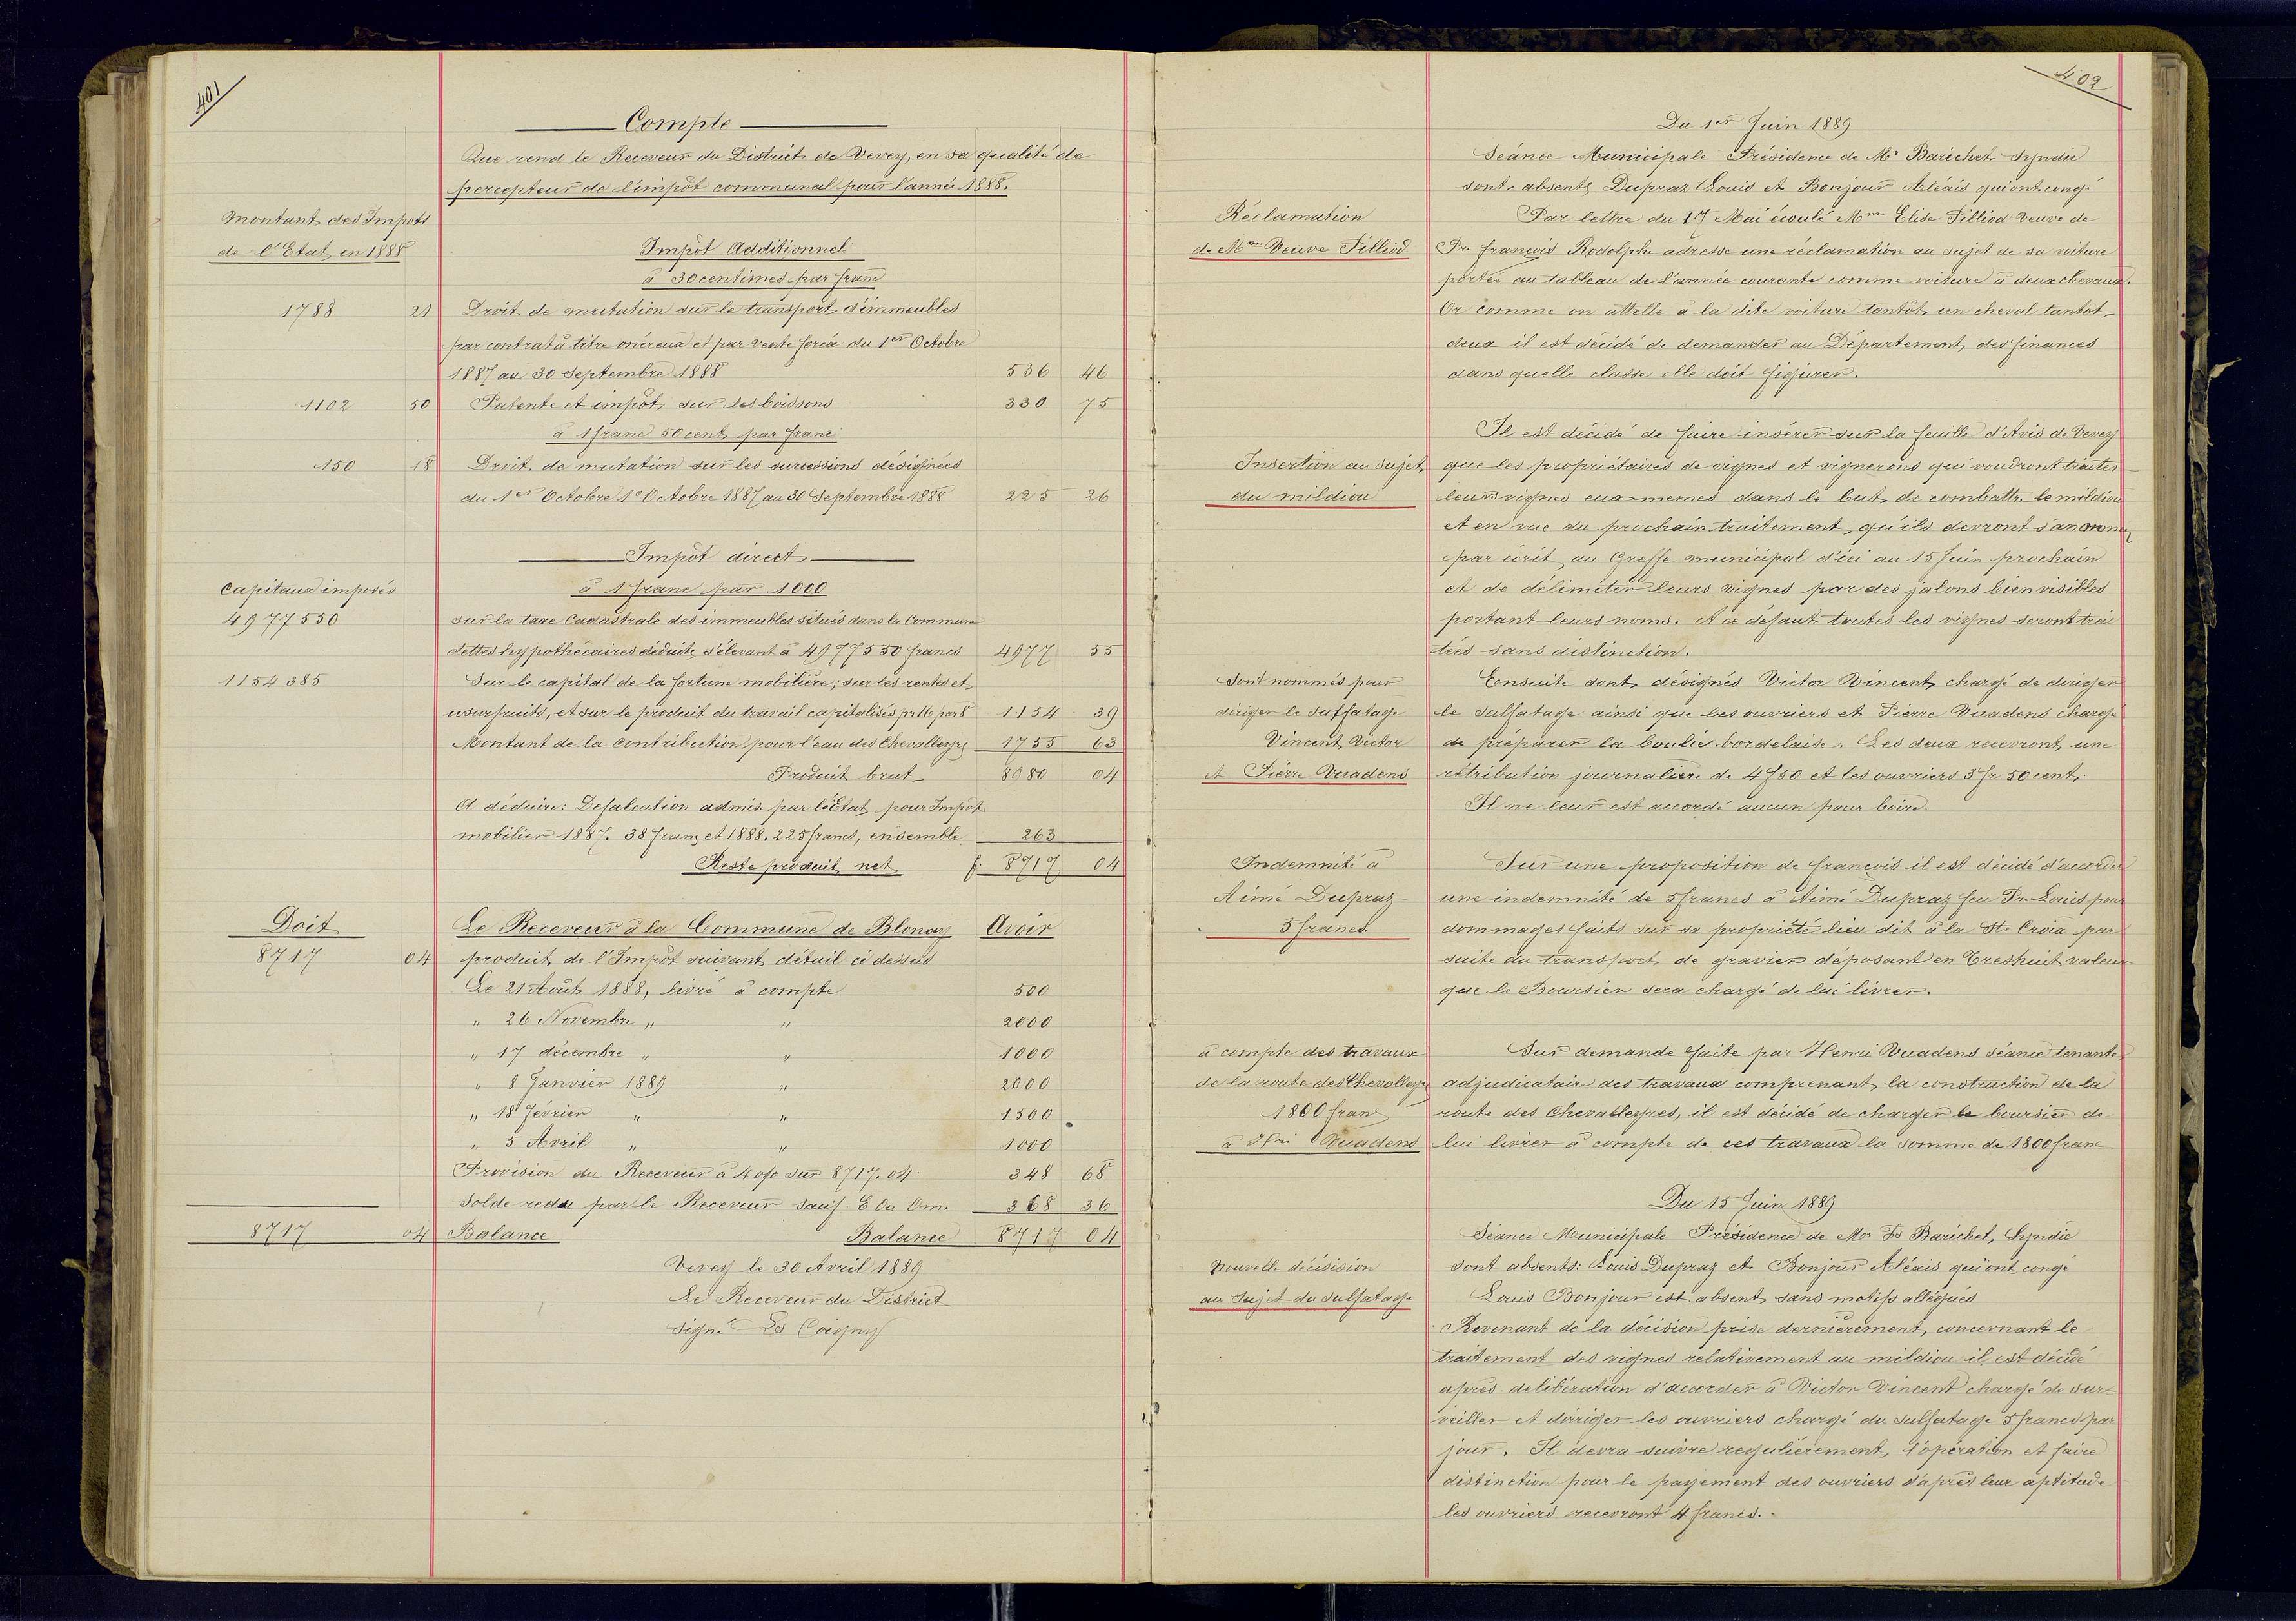 401
Compte
Que rend le Receveur du District de Vevey, en sa qualité de
percepteur de l'impôt communal pour l'année 1888.
Montant des Impots
de l'Etat en 1888
Impôt Additionnel
à 30 centimes par franc
1788 21 Droit de mutation sur le transport d'immeubles
par contrat à titre onéreux et par vente forcée du 1er Octobre
1887 au 30 Septembre 1888 536 46
1102 50 Patente et impôt sur les boissons 330 75
à 1 franc 50 cent par franc
150 18 Droit de mutation sur les successions désignées
du 1er Octobre 1er Octobre 1887 au 30 Septembre 1888 225 26
Impôt direct
Capitaux imposés à 1 franc par 1000
4977550 sur la taxe Cadastrale des immeubles situés dans la Commune
dettes hypothécaires déduite s'élevant à 4977550 francs 4977 55
1154385 Sur le capital de la fortune mobilière; sur les rentes et
usurfruits, et sur le produit du travail capitalisés pr 16 par 8 1154 39
Montant de la contribution pour l'eau des Chevalleyres 1755 63
Produit brut 8980 04
A déduire: Defalcation admis par l'Etat pour Impôt
mobilier 1887. 38 francs et 1888. 225 francs, ensemble 263
Reste produit net f. 8717 04
Doit Le Receveur à la Commune de Blonay Avoir
8717 04 produit de l'Impôt suivant détail ci dessus
Le 21 Août 1888, livré à compte 500
" 26 Novembre " " 2000
" 17 décembre " " 1000
" 8 Janvier 1889 " 2000
" 18 février " " 1500
" 5 Avril " " 1000
Provision du Receveur à 4 o/o sur 8717.04 348 68
Solde redû par le Receveur sauf E Ou Om. 368 36
8717 04 Balance Balance 8717 04
Vevey le 30 Avril 1889
Le Receveur du District
signé Ls Coigny
402
Du 1er Juin 1889
Séance Municipale Présidence de Mr Barichet Syndic
sont absents Dupraz Louis et Bonjour Aléxis qui ont congé
Réclamation Par lettre du 17 Mai écoulé Mme Elise Pilliod veuve de
de Mme Veuve Pilliod Fr. François Rodolphe adresse une réclamation au sujet de sa voiture
portée au tableau de l'année courante comme voiture à deux chevaux.
Or comme on attelle à la dite voiture tantôt un cheval tantôt
deux il est décidé de demander au Département des finances
dans quelle classe elle doit figurer.
Il est décidé de faire insérer sur la feuille d'Avis de Vevey
Insertion au sujet que les propriétaires de vignes et vignerons qui voudront traiter
du mildiou leurs vignes eux-memes dans le but de combattre le mildiou
et en vue du prochain traitement qu'ils devront s'annoncer
par écrit au Greffe municipal d'ici au 15 Juin prochain
et de délimiter leurs vignes par des jalons bien visibles
portant leurs noms. A ce défaut toutes les vignes seront trai
tées sans distinction.
Sont nommés pour Ensuite sont désignés Victor Vincent chargé de diriger
diriger le Sulfatage le sulfatage ainsi que les ouvriers et Pierre Vuadens chargé
Vincent Victor de préparer la boulie bordelaise. Les deux recevront une
et Pierre Vuadens rétribution journalière de 4f50 et les ouvriers 3 fr 50 cent.
Il ne leur est accordé aucun pour boire.
Indemnité à Sur une proposition de François il est décidé d'accorder
Aimé Dupraz une indemnité de 5 francs à Aimé Dupraz feu Fr. Louis pour
5 francs dommages faits sur sa propriété lieu dit à la Ste Croix par
suite du transport de gravier déposant en valeur
que le Boursier sera chargé de lui livrer.
à compte des travaux Sur demande faite par Henri Vuadens séance tenante
de la route des Chevalleyres adjudicataire des travaux comprenant la construction de la
1800 franc route des Chevalleyres, il est décidé de charger le boursier de
à Hri Vuadens lui livrer à compte de ces travaux la somme de 1800 franc
Du 15 Juin 1889
Séance Municipale Présidence de Mr Fs Barichet, Syndic
Nouvelle décisision sont absents: Louis Dupraz et Bonjour Aléxis qui ont congé
au sujet du sulfatage Louis Bonjour est absent sans motifs allégués
Revenant de la décision prise dernièrement, concernant le
traitement des vignes relativement au mildiou il est décidé
après délibération d'accorder à Victor Vincent chargé de sur-
veiller et diriger les ouvriers chargé du sulfatage 5 francs par
jour. Il devra suivre regulièrement l'opération et faire
distinction pour le payement des ouvriers d'après leur aptitude
les ouvriers recevront 4 francs.